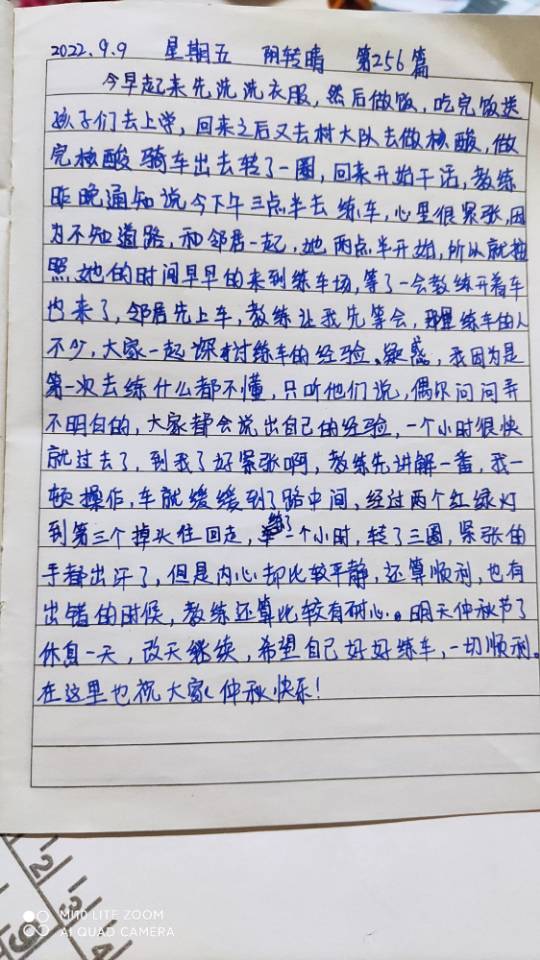 2022.9.9 星期五 阴转晴 第256篇
今早起来先洗洗衣服，然后做饭，吃完饭送
孩子们去上学，回来之后又去村大队去做核酸，做
完核酸骑车出去转了一圈，回来开始干活，教练
昨晚通知说今下午三点半去练车，心里很紧张，因
为不知道路，和邻居一起，她两点半开始，所以就按
照她的时间早早的来到练车场，等了一会教练开着车
也来了，邻居先上车，教练让我先等会，那里练车的人
不少，大家一起探讨练车的经验、疑惑，我因为是
第一次去练什么都不懂，只听他们说，偶尔问问弄
不明白的，大家都会说出自己的经验，一个小时很快
就过去了，到我了好紧张啊，教练先讲解一番，我一
顿操作，车就缓缓到了路中间，经过两个红绿灯
到第三个掉头往回走，练了一个小时，转了三圈，紧张的
手都出汗了，但是内心却比较平静，还算顺利，也有
出错的时候，教练还算比较有耐心。明天仲秋节了
休息一天，改天继续，希望自己好好练车，一切顺利。
在这里也祝大家仲秋快乐！
2
3
4
MI 10 LITE ZOOM
AI QUAD CAMERA